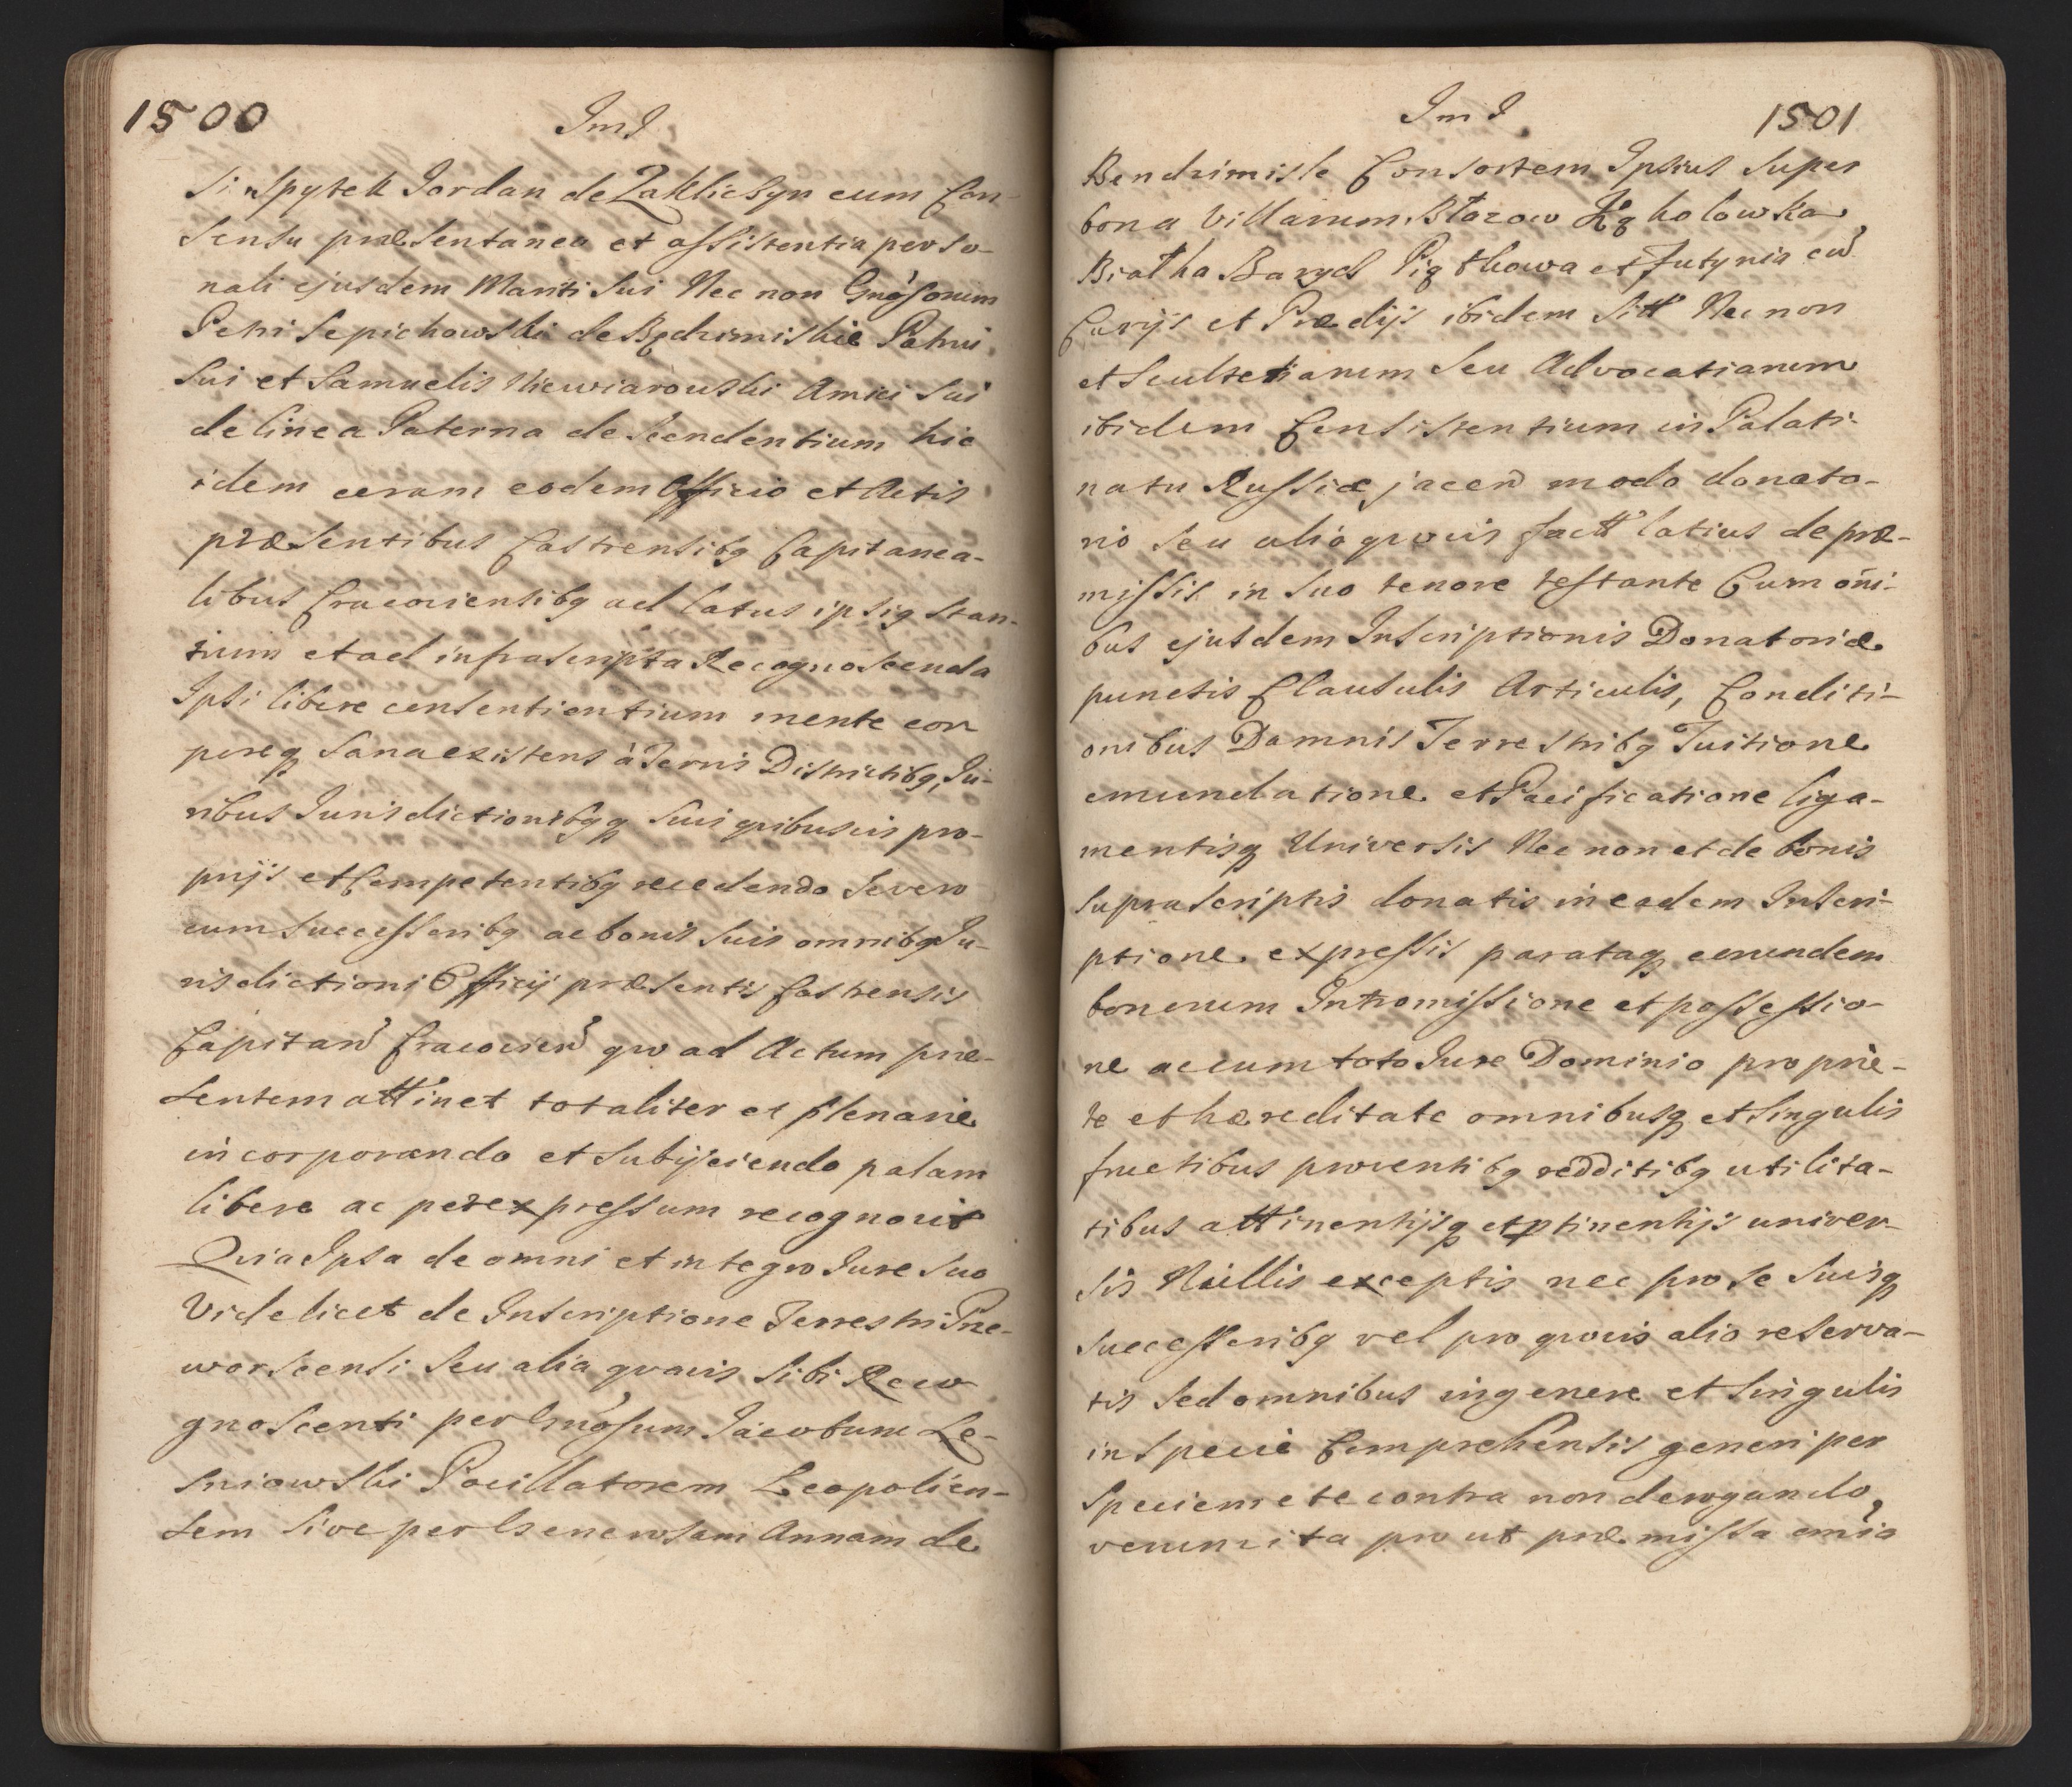 1500
ImI
Si Spytek Jordan de Zakliczyn cum Con-
sensu præsentaneo et assistentia perso-
nali ejusdem Mariti Sui Nec non Gnosorum
Petri Sepichowski de Będzimishie Patrui
Sui et Samuelis Niewiarowski Amici Sui
de linea Paterna descendentium hic
idem coram eodem Officio et Actis
præsentibus Castrensibq Capitanea-
libus Cracoviensibq ad latus ipsiq stan-
tium et ad infrascripta Recognoscenda
Ipsi libere consentientium mente cor
poreq Sana existens à Terris Districtibq, Ju-
ribus Jurisdictionibqq suis qvibusvis pro-
prijs et Competentibq recedendo Se vero
cum Successoribq ac bonis suis omnibq Ju-
risdictioni Officij præsentis Castrensis
Capitan Cracovien qvo ad Actum præ-
sentem attinet totaliter et plenarie
incorporando et subijciendo palam
libere ac per expressum recognovit
Qvia Ipsa de omni et integro Jure suo
Videlicet de Inscriptione Terrestri Præ-
worscensi seu alia qvavis Sibi Reco
gnoscenti per Gnosum Jacobum Le-
sniowski Pocillatorem Leopolien-
sem sive per Generosam Annam de
ImI
1501
Bendzimishe Consortem Ipsius super
bona Villarum Błazow Kąkolowka
Białka Barycz Piątkowa et Futynia cu
Curijs et Prædijs ibidem Sitt Nec non
et Scultetiarum seu Advocatiarum
ibidem Consistentium in Palati-
natu Russiæ jacen modo donato-
rio seu alio qvovis factt latius de præ-
missis in suo tenore testante Cum oni-
bus ejusdem Inscriptionis Donatoriæ
punctis Clausulis Articulis, Conditi-
onibus Damnis Terrestribq Tuitione
emundatione et Pacificatione liga-
mentisq Universis Nec non et de bonis
suprascriptis donatis in eadem Inscri-
ptione expressis parataq eorundem
bonorum Intromissione et possessio-
ne ac cum toto Jure Dominio proprie-
te et hæreditate omnibusq et singulis
fructibus proventibq redditibq utilita-
tibus attinentijsq et ptinentijs univer-
sis Nullis exceptis nec pro se suisq
successoribq vel pro qvovis alio reserva-
tis sed omnibus in genere et singulis
in specie Comprehensis generi per
speciem et e contra non derogando,
verum ita pro ut præmissa omia